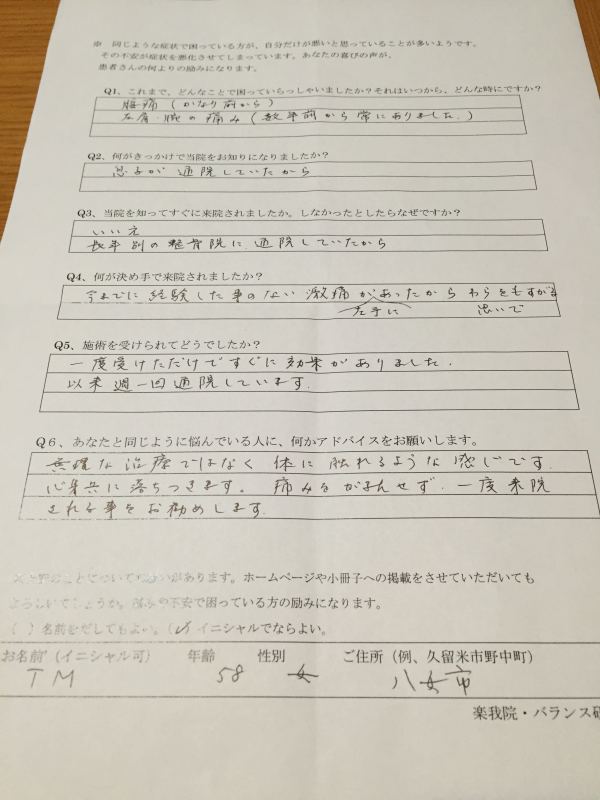 ※ 同じような症状で困っている方が、自分だけが悪いと思っていることが多いようです。
その不安が症状を悪化させてしまっています。あなたの喜びの声が、
患者さんの何よりの励みになります。
Q1、これまで、どんなことで困っていらっしゃいましたか？それはいつから、どんな時にですか？
腰痛（かなり前から）
左肩・腕の痛み（数年前から常にありました。）
Q2、何がきっかけで当院をお知りになりましたか？
息子が通院していたから
Q3、当院を知ってすぐに来院されましたか。しなかったとしたらなぜですか？
いいえ
長年別の整骨院に通院していたから
Q4、何が決め手で来院されましたか？
今までに経験した事のない激痛があったからわらをもすがる
左手に 思いで
Q5、施術を受けられてどうでしたか？
一度受けただけですぐに効果がありました。
以来週一回通院しています。
Q6、あなたと同じように悩んでいる人に、何かアドバイスをお願いします。
無理な治療ではなく体に触れるような感じです。
心身共に落ちつきます。痛みをがまんせず、一度来院
される事をお勧めします。
がいがあります。ホームページや小冊子への掲載をさせていただいても
よろしいでしょうか。痛みや不安で困っている方の励みになります。
（ ）名前をだしてもよい。（✓）イニシャルでならよい。
お名前（イニシャル可） 年齢 性別 ご住所（例、久留米市野中町）
TM 58 女 八女市
楽我院・バランス研